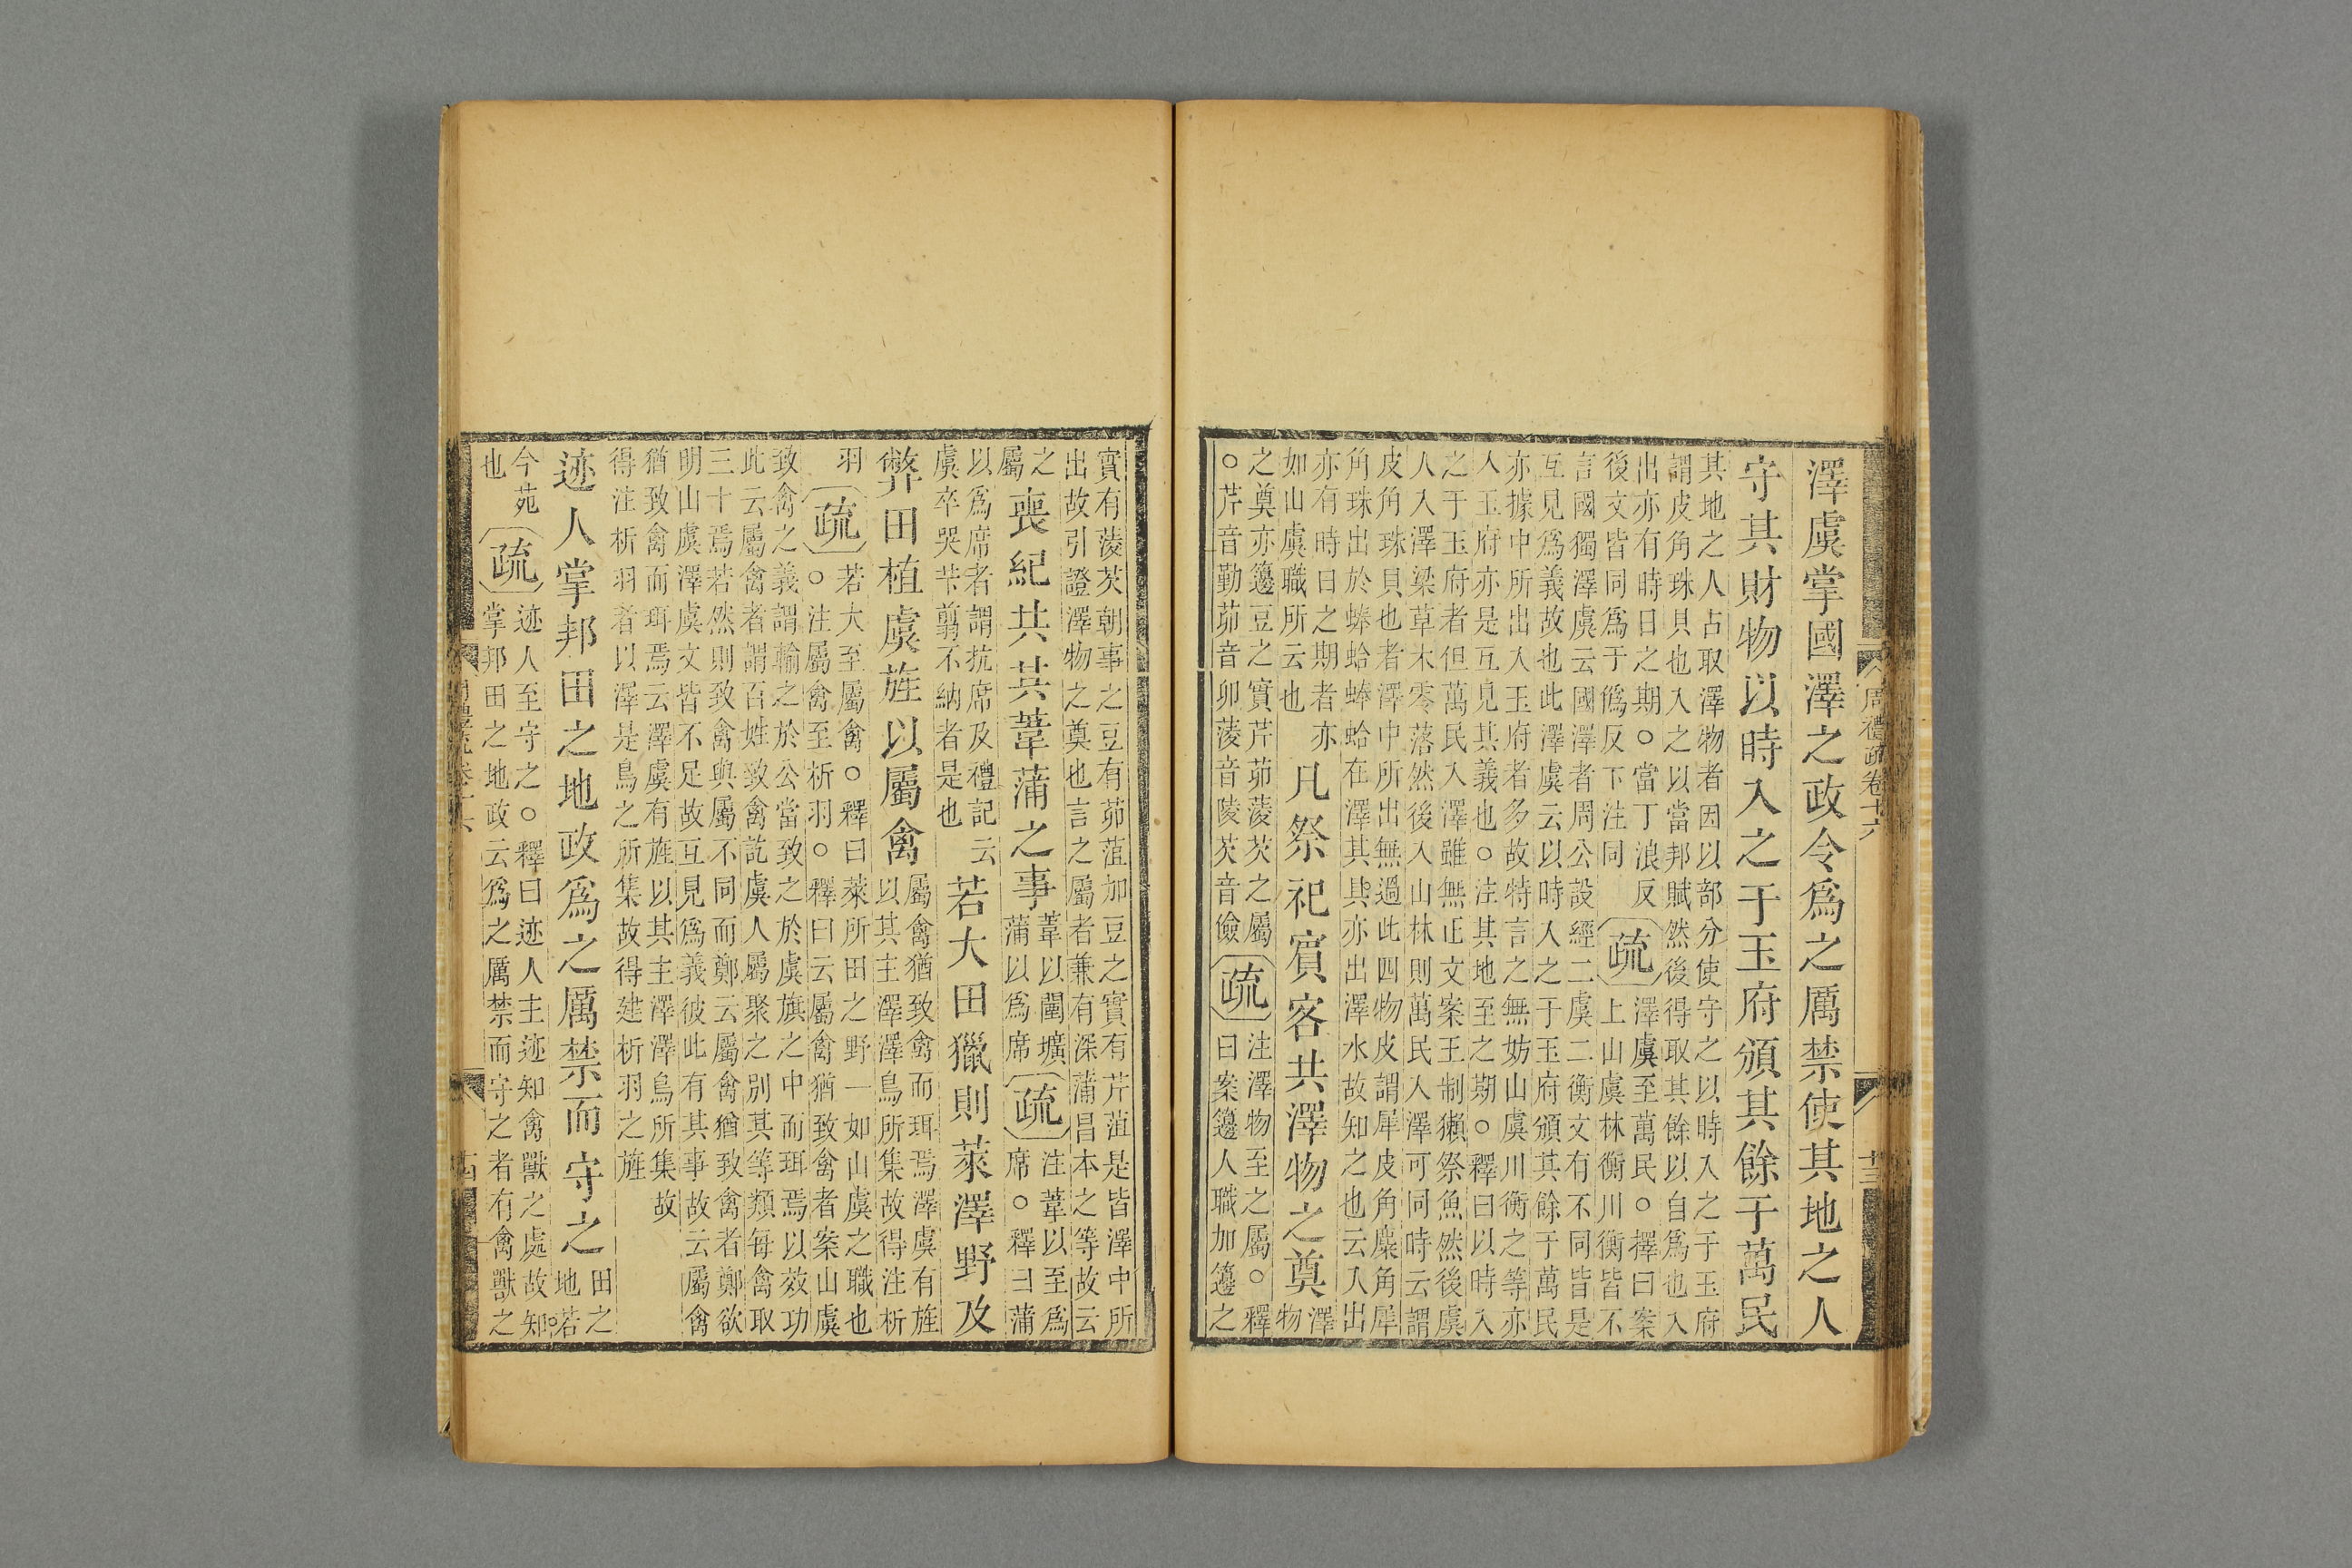 周禮疏卷十六
十三
澤虞掌國澤之政令爲之厲禁使其地之人
守其財物以時入之于玉府頒其餘于萬民
其地之人占取澤物者因以部分使守之以時入之于玉府
謂皮角珠貝也入之以當邦賦然後得取其餘以自爲也入
出亦有時日之期○當丁浪反
後文皆同爲于僞反下注同
疏
澤虞至萬民○釋曰案
上山虞林衡川衡皆不
言國獨澤虞云國澤者周公設經二虞二衡文有不同皆是
互見爲義故也此澤虞云以時入之于玉府頒其餘于萬民
亦據中所出入玉府者多故特言之無妨山虞川衡之等亦
入玉府亦是互見其義也○注其地至之期○釋曰以時入
之于玉府者但萬民入澤雖無正文案王制獺祭魚然後虞
人入澤梁草木零落然後入山林則萬民入澤可同時云謂
皮角珠貝也者澤中所出無過此四物皮謂犀皮角麋角犀
角珠出於蜯蛤蜯蛤在澤其貝亦出澤水故知之也云入出
亦有時日之期者亦
如山虞職所云也
凡祭祀賓客共澤物之奠
澤
物
之奠亦籩豆之實芹茆蔆芡之屬
○芹音勤茆音卯蔆音陵芡音儉
疏
注澤物至之屬○釋
曰案籩人職加籩之
實有蔆芡朝事之豆有茆菹加豆之實有芹菹是皆澤中所
出故引證澤物之奠也言之屬者兼有深蒲昌本之等故云
之
屬
喪紀共其葦蒲之事
葦以闉壙
蒲以爲席
疏
注葦以至爲
席○釋曰蒲
以爲席者謂抗席及禮記云
虞卒哭芐翦不納者是也
若大田獵則萊澤野及
弊田植虞旌以屬禽
屬禽猶致禽而珥焉澤虞有旌
以其主澤澤鳥所集故得注析
羽
疏
若大至屬禽○釋曰萊所田之野一如山虞之職也
○注屬禽至析羽○釋曰云屬禽猶致禽者案山虞
致禽之義謂輸之於公當致之於虞旗之中而珥焉以效功
此云屬禽者謂百姓致禽訖虞人屬聚之別其等類每禽取
三十焉若然則致禽與屬不同而鄭云屬禽猶致禽者鄭欲
明山虞澤虞文皆不足故互見爲義彼此有其事故云屬禽
猶致禽而珥焉云澤虞有旌以其主澤澤鳥所集故
得注析羽者以澤是鳥之所集故得建析羽之旌
迹人掌邦田之地政爲之厲禁而守之
田之
地若
今苑
也
疏
迹人至守之○釋曰迹人主迹知禽獸之處故知
掌邦田之地政云爲之厲禁而守之者有禽獸之
周禮疏卷十六
十四